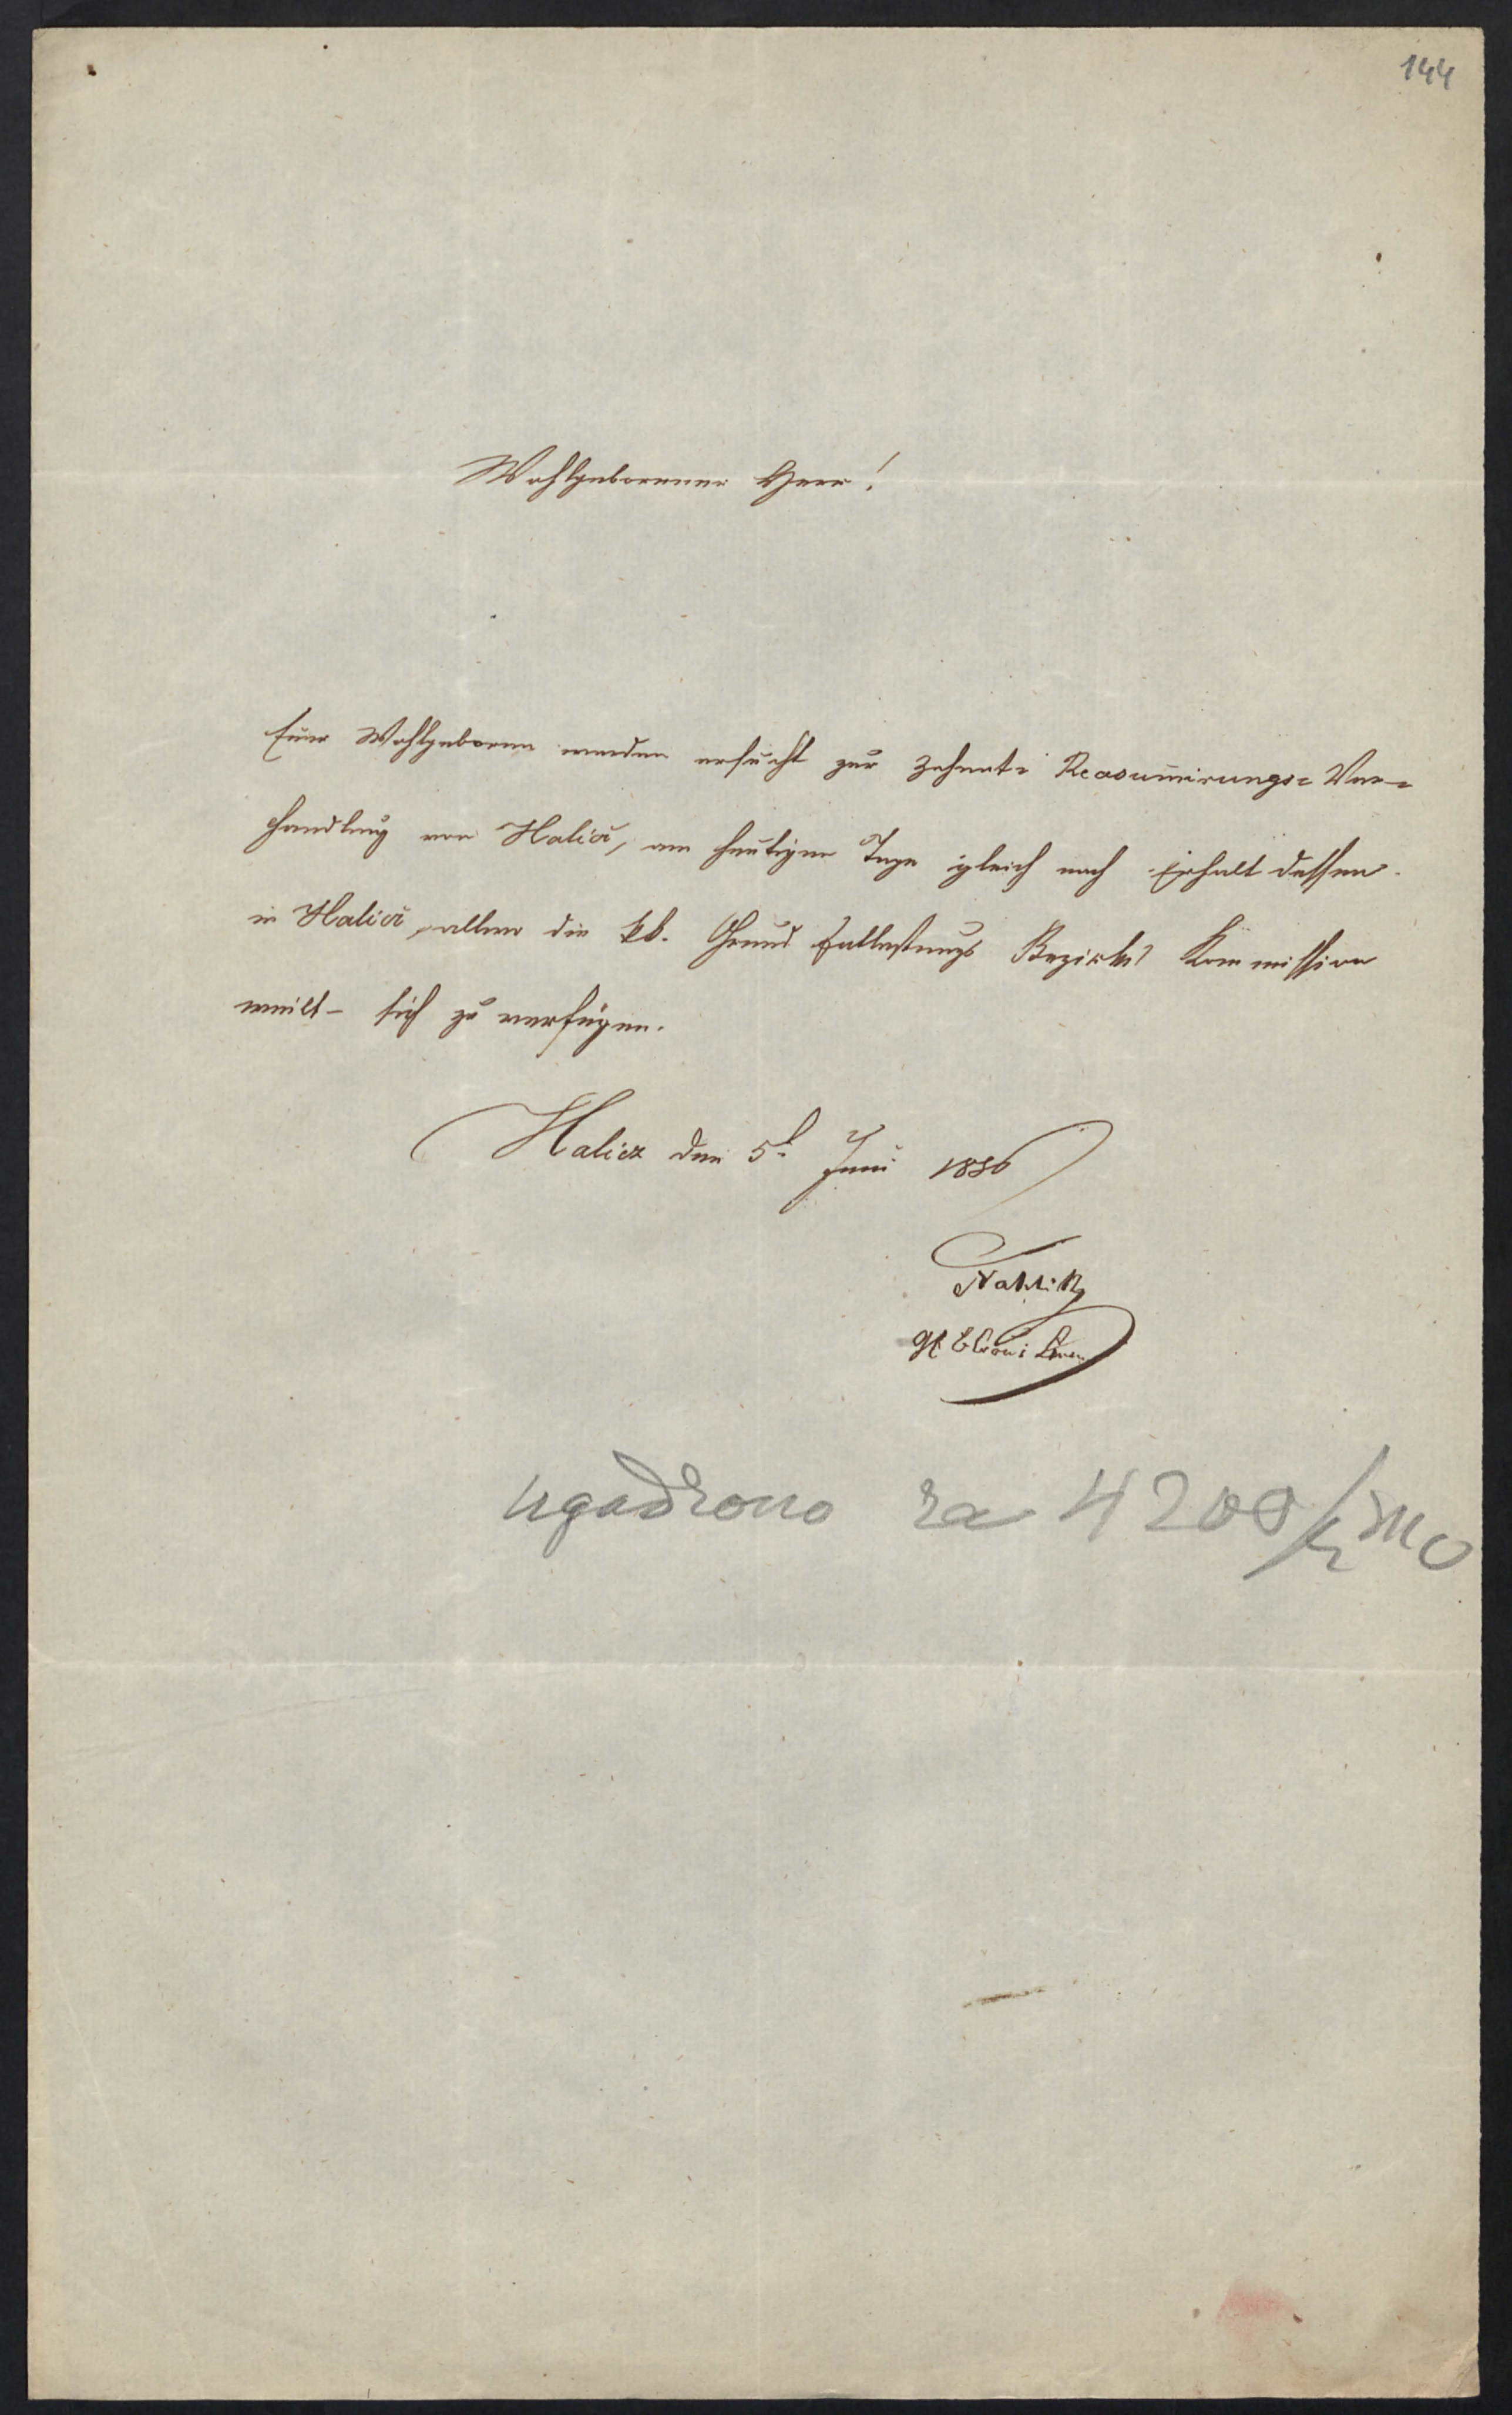 144
Wohlgeborener Herr!
Euer Wohlgeboren werden ersucht zur Zehent= Reasumirungs= Ver=
handlung von Halicz, am heutigen Tage gleich nach Erhalt dessen
in Halicz, allwo die k.k. Grund Entlastungs Bezirks Kommission
weilt – sich zu verfügen.
Halicz den 5t. Juni 1856
ugodzono za 4200